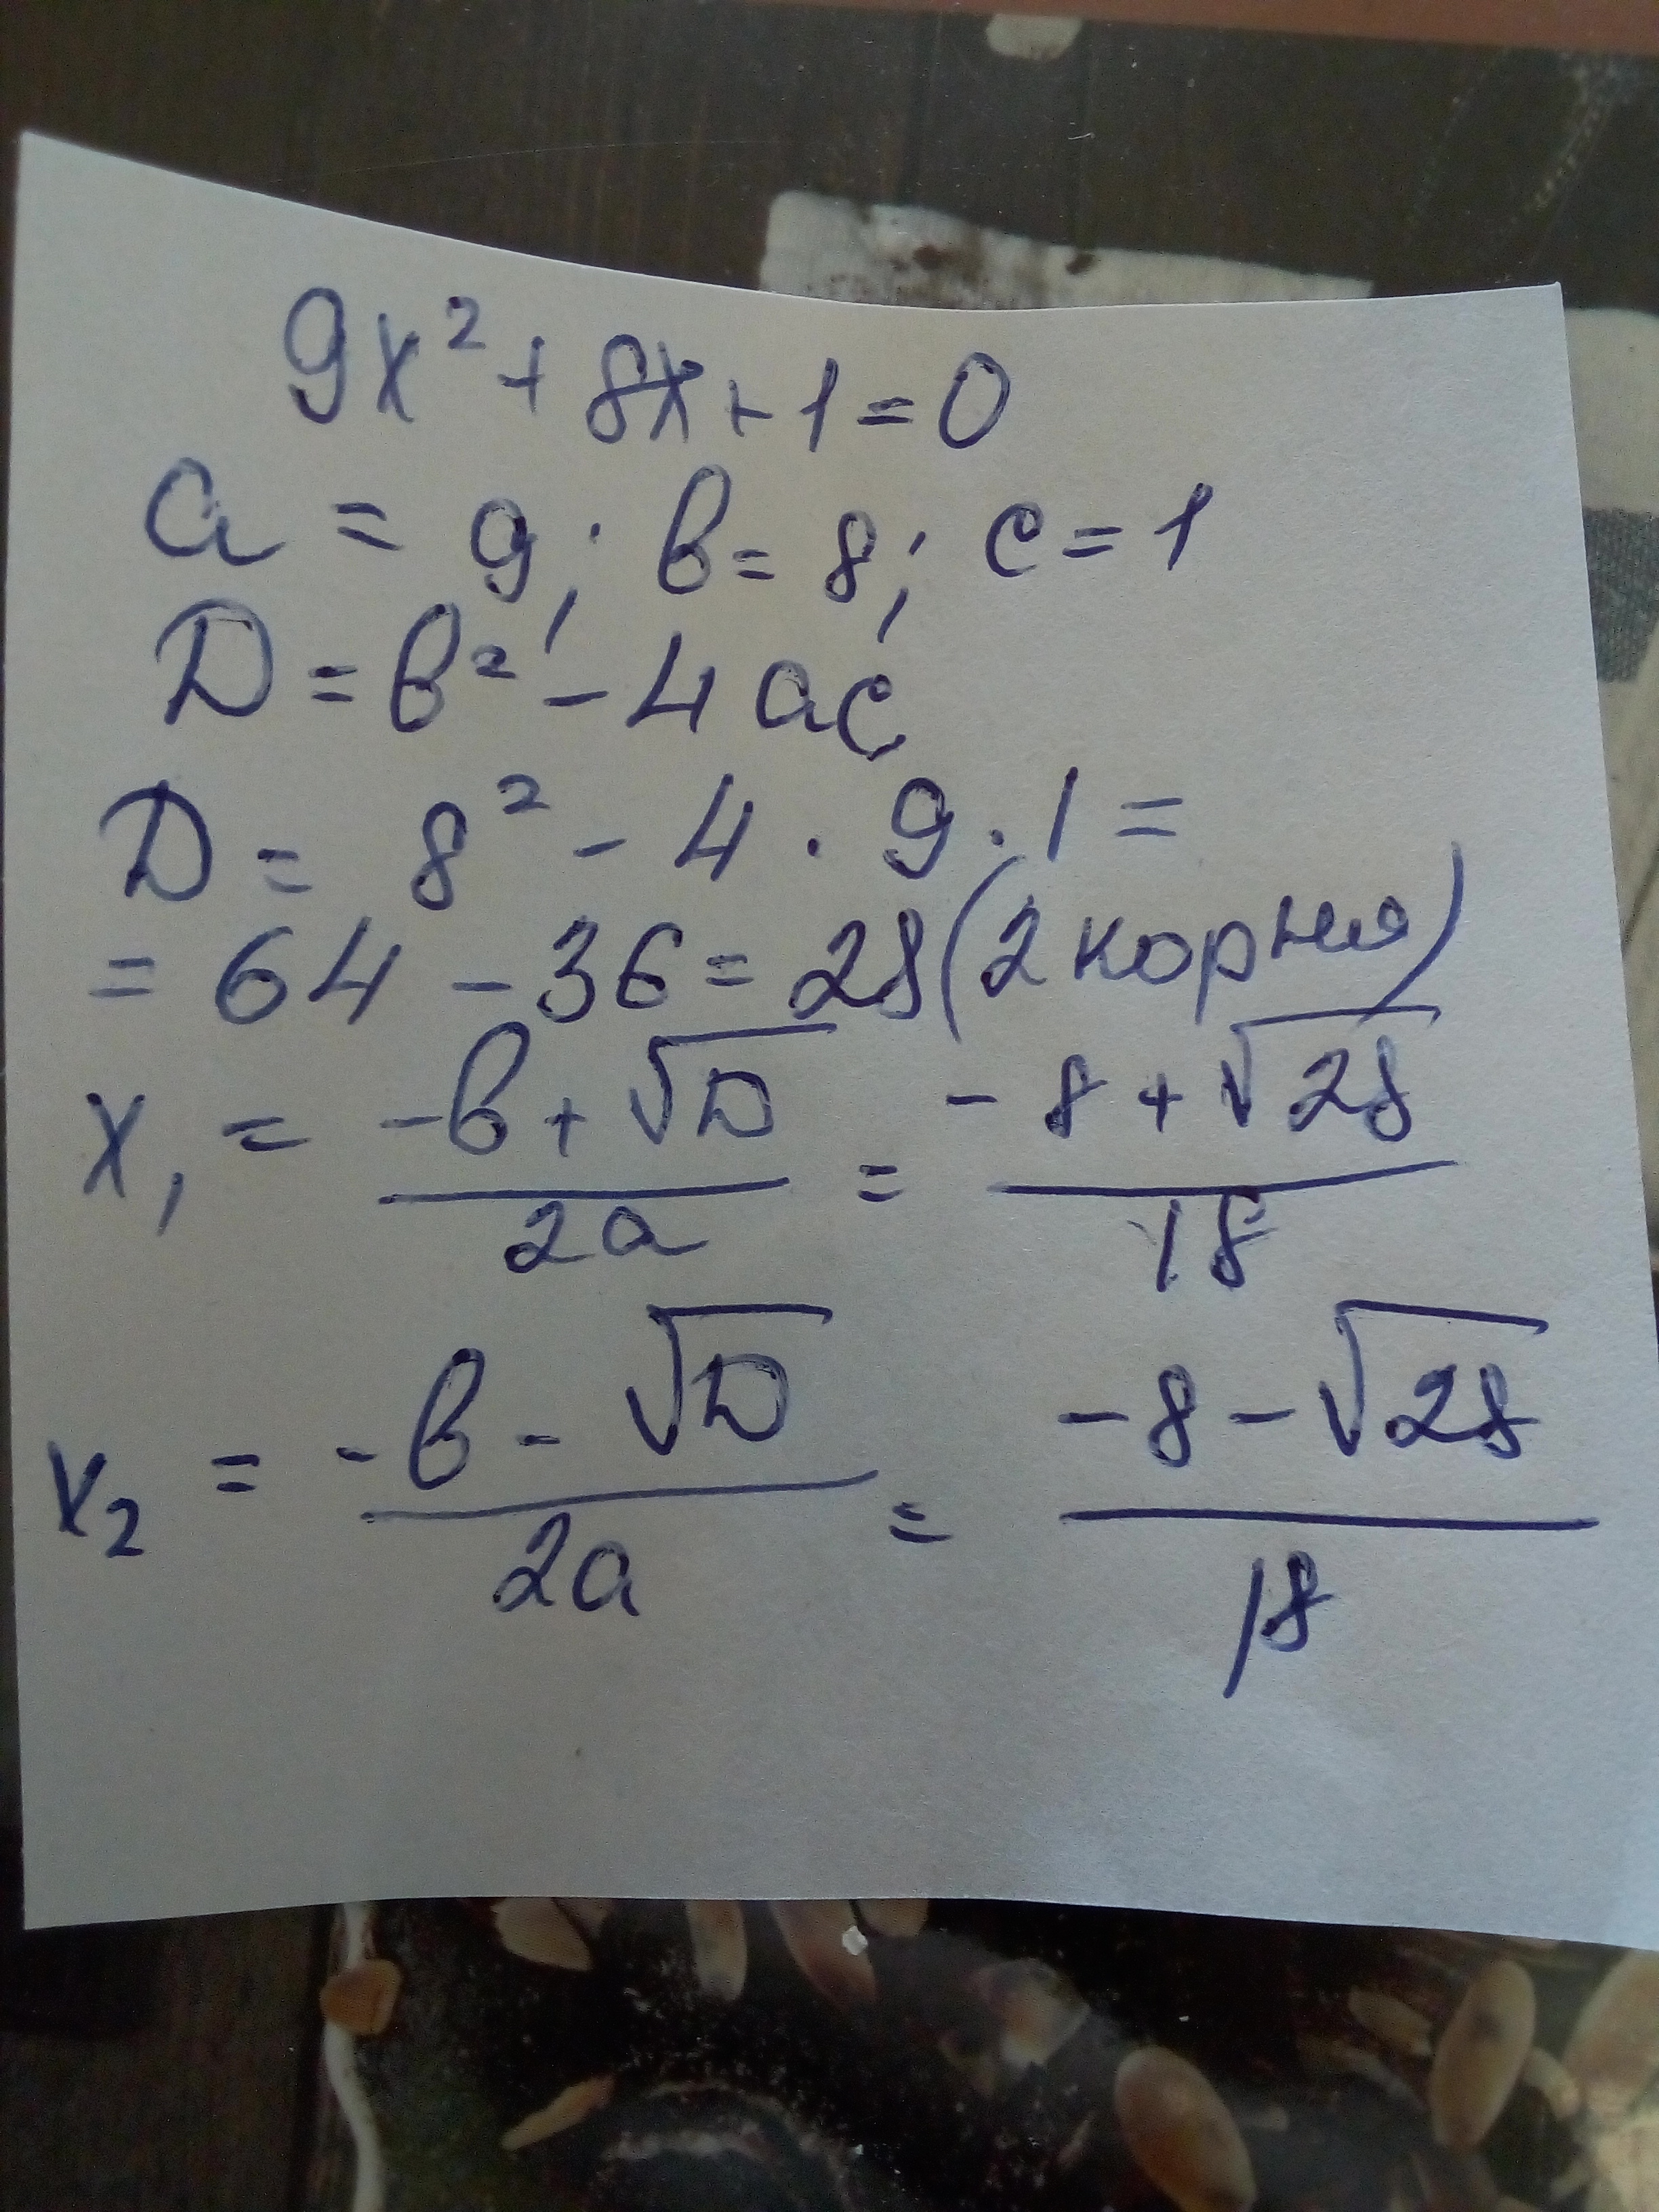 9x² + 8x + 1 = 0
a = 9; b = 8; c = 1
D = b² - 4ac
D = 8² - 4 · 9 · 1 =
= 64 - 36 = 28 (2 корня)
x₁ = (-b + √D) / 2a = (-8 + √28) / 18
x₂ = (-b - √D) / 2a = (-8 - √28) / 18